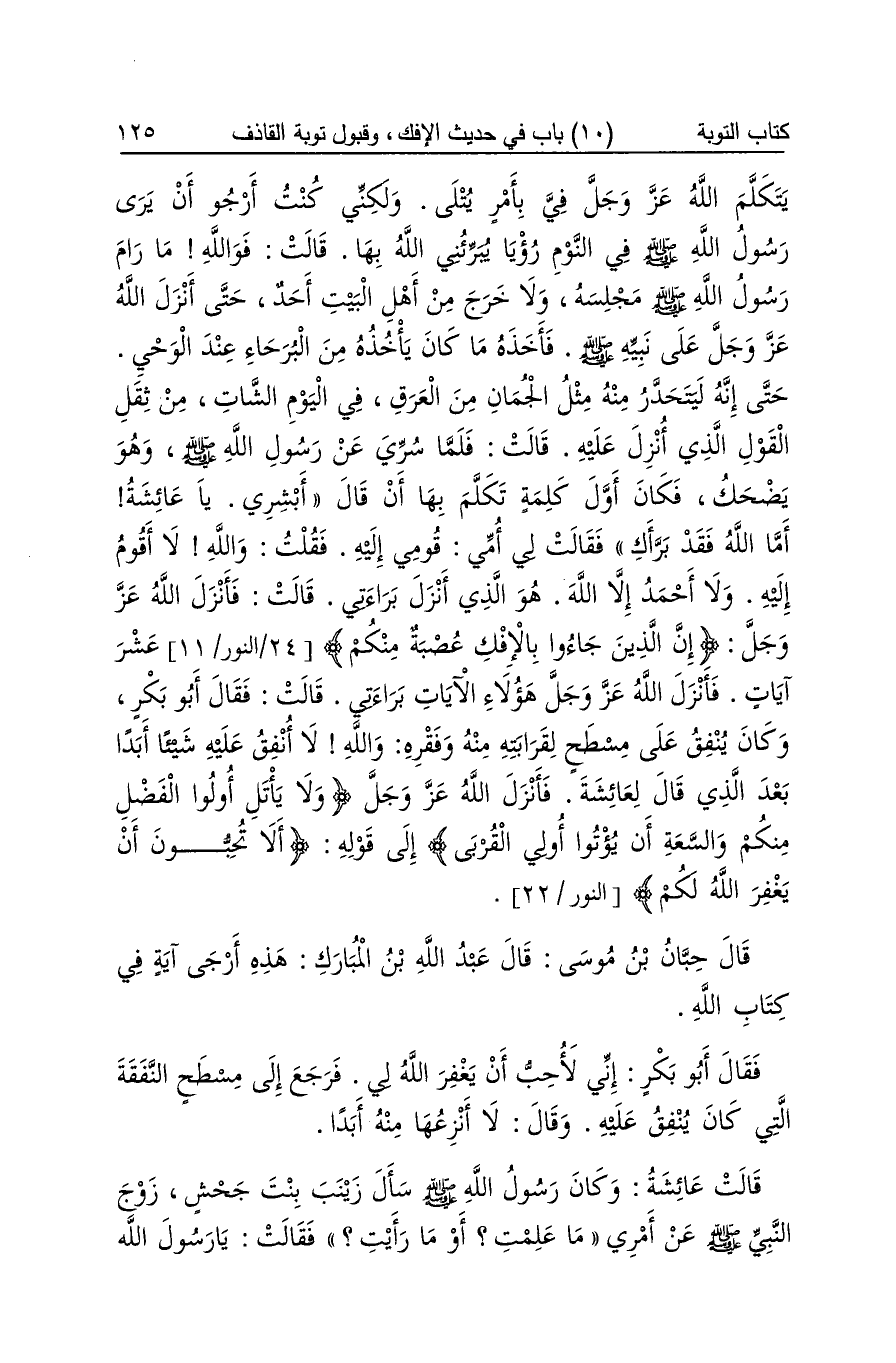 كتاب التوبة (١٠) باب في حديث الإفك ، وقبول توبة القاذف ١٢٥
يَتَكَلَّمَ اللَّهُ عَزَّ وَجَلَّ فِيَّ بِأَمْرٍ يُتْلَى . وَلَكِنِّي كُنْتُ أَرْجُو أَنْ يَرَى
رَسُولُ اللَّهِ ﷺ فِي النَّوْمِ رُؤْيَا يُبَرِّئُنِي اللَّهُ بِهَا . قَالَتْ : فَوَاللَّهِ ! مَا رَامَ
رَسُولُ اللَّهِ ﷺ مَجْلِسَهُ ، وَلَا خَرَجَ مِنْ أَهْلِ الْبَيْتِ أَحَدٌ ، حَتَّى أَنْزَلَ اللَّهُ
عَزَّ وَجَلَّ عَلَى نَبِيِّهِ ﷺ . فَأَخَذَهُ مَا كَانَ يَأْخُذُهُ مِنَ الْبُرَحَاءِ عِنْدَ الْوَحْيِ .
حَتَّى إِنَّهُ لَيَتَحَدَّرُ مِنْهُ مِثْلُ الْجُمَانِ مِنَ الْعَرَقِ ، فِي الْيَوْمِ الشَّاتِ ، مِنْ ثِقَلِ
الْقَوْلِ الَّذِي أُنْزِلَ عَلَيْهِ . قَالَتْ : فَلَمَّا سُرِّيَ عَنْ رَسُولِ اللَّهِ ﷺ ، وَهُوَ
يَضْحَكُ ، فَكَانَ أَوَّلَ كَلِمَةٍ تَكَلَّمَ بِهَا أَنْ قَالَ « أَبْشِرِي . ياَ عَائِشَةُ!
أَمَّا اللَّهُ فَقَدْ بَرَّأَكِ » فَقَالَتْ لِي أُمِّي : قُومِي إِلَيْهِ . فَقُلْتُ : وَاللَّهِ ! لَا أَقُومُ
إِلَيْهِ . وَلَا أَحْمَدُ إِلَّا اللَّهَ . هُوَ الَّذِي أَنْزَلَ بَرَاءَتِي . قَالَتْ : فَأَنْزَلَ اللَّهُ عَزَّ
وَجَلَّ : ﴿ إِنَّ الَّذِينَ جَاءُوا بِالْإِفْكِ عُصْبَةٌ مِنْكُمْ ﴾ [ ٢٤/النور/ ١١ ] عَشْرَ
آيَاتٍ . فَأَنْزَلَ اللَّهُ عَزَّ وَجَلَّ هَؤُلَاءِ الْآيَاتِ بَرَاءَتِي . قَالَتْ : فَقَالَ أَبُو بَكْرٍ ،
وَكَانَ يُنْفِقُ عَلَى مِسْطَحٍ لِقَرَابَتِهِ مِنْهُ وَفَقْرِهِ: وَاللَّهِ ! لَا أُنْفِقُ عَلَيْهِ شَيْئًا أَبَدًا
بَعْدَ الَّذِي قَالَ لِعَائِشَةَ . فَأَنْزَلَ اللَّهُ عَزَّ وَجَلَّ ﴿ وَلَا يَأْتَلِ أُولُوا الْفَضْلِ
مِنكُمْ وَالسَّعَةِ أَن يُؤْتُوا أُولِي الْقُرْبَى ﴾ إِلَى قَوْلِهِ : ﴿ أَلَا تُحِبُّـــونَ أَنْ
يَغْفِرَ اللَّهُ لَكُمْ ﴾ [ النور / ٢٢ ] .
قَالَ حِبَّانُ بْنُ مُوسَى : قَالَ عَبْدُ اللَّهِ بْنُ الْمُبَارَكِ : هَذِهِ أَرْجَى آيَةٍ فِي
كِتَابِ اللَّهِ .
فَقَالَ أَبُو بَكْرٍ : إِنِّي لَأُحِبُّ أَنْ يَغْفِرَ اللَّهُ لِي . فَرَجَعَ إِلَى مِسْطَحٍ النَّفَقَةَ
الَّتِي كَانَ يُنْفِقُ عَلَيْهِ . وَقَالَ : لَا أَنْزِعُهَا مِنْهُ أَبَدًا .
قَالَتْ عَائِشَةُ : وَكَانَ رَسُولُ اللَّهِ ﷺ سَأَلَ زَيْنَبَ بِنْتَ جَحْشٍ ، زَوْجَ
النَّبِيِّ ﷺ عَنْ أَمْرِي « مَا عَلِمْتِ ؟ أَوْ مَا رَأَيْتِ ؟ » فَقَالَتْ : يَارَسُولَ اللَّه